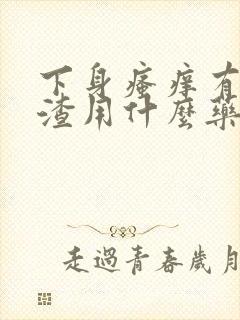 下身瘙痒有
渣用什麼藥
走過青春歲月